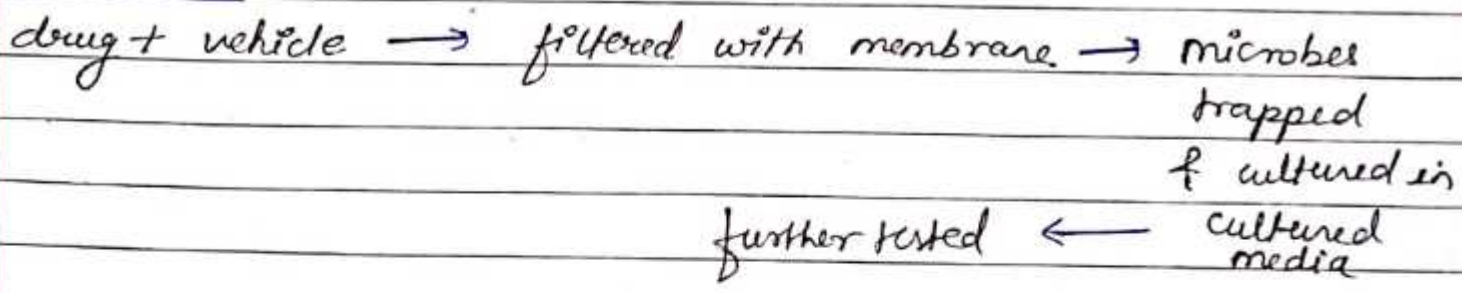 drug + vehicle → filtered with membrane → microbes
trapped
& cultured in
cultured
media
further tested ←